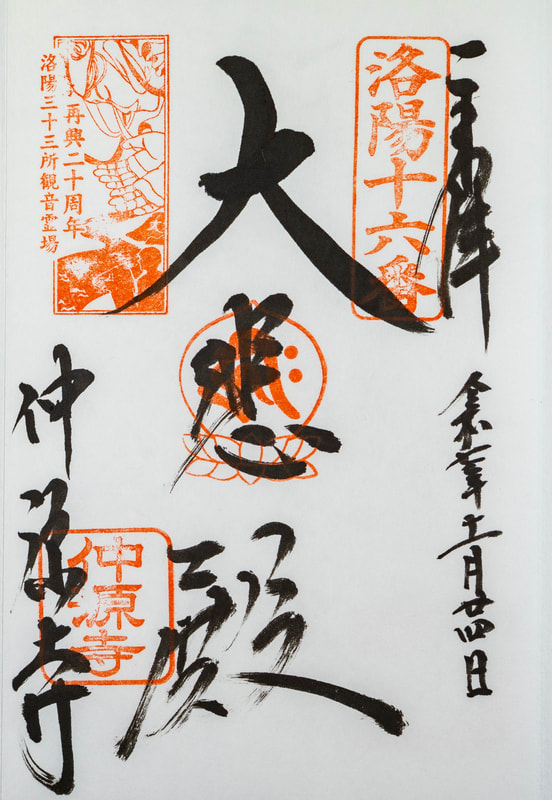 奉拝
令和 年十一月廿四日
洛陽十六番
大悲殿
再興二十周年
洛陽三十三所観音霊場
仲源寺
仲源寺